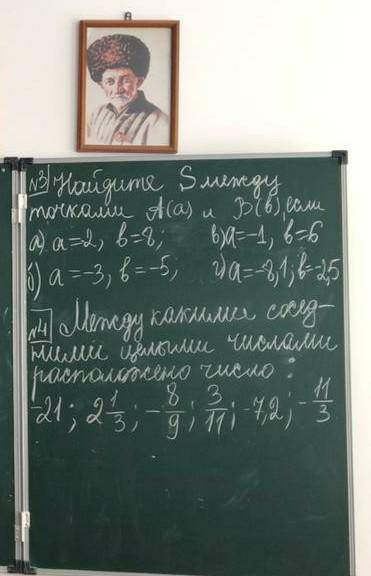 №3 Найдите S между
точками A(a) и B(b), если
а) a=2, b=8; в) a=-1, b=6
б) a=-3, b=-5, г) a=-8,1; b=-2,5
№4 Между какими сосед-
ними целыми числами
расположено число:
-21; 2 1/3; -8/9; 3/11; -7,2; -11/3